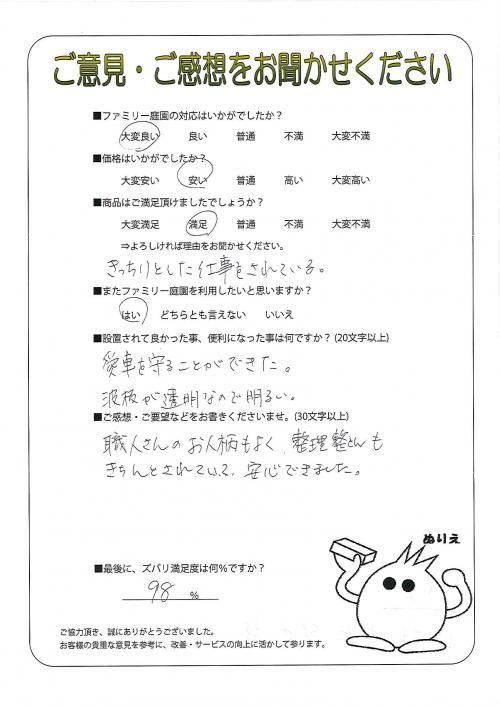 ご意見・ご感想をお聞かせください
■ファミリー庭園の対応はいかがでしたか？
大変良い 良い 普通 不満 大変不満
■価格はいかがでしたか？
大変安い 安い 普通 高い 大変高い
■商品はご満足頂けましたでしょうか？
大変満足 満足 普通 不満 大変不満
⇒よろしければ理由をお聞かせください。
きっちりとした仕事をされている。
■またファミリー庭園を利用したいと思いますか？
はい どちらとも言えない いいえ
■設置されて良かった事、便利になった事は何ですか？(20文字以上)
愛車を守ることができた。
波板が透明なので明るい。
■ご感想・ご要望などをお書きくださいませ。(30文字以上)
職人さんのお人柄もよく、整理整とんも
きちんとされていて、安心できました。
ぬりえ
■最後に、ズバリ満足度は何％ですか？
98 ％
ご協力頂き、誠にありがとうございました。
お客様の貴重な意見を参考に、改善・サービスの向上に活かして参ります。